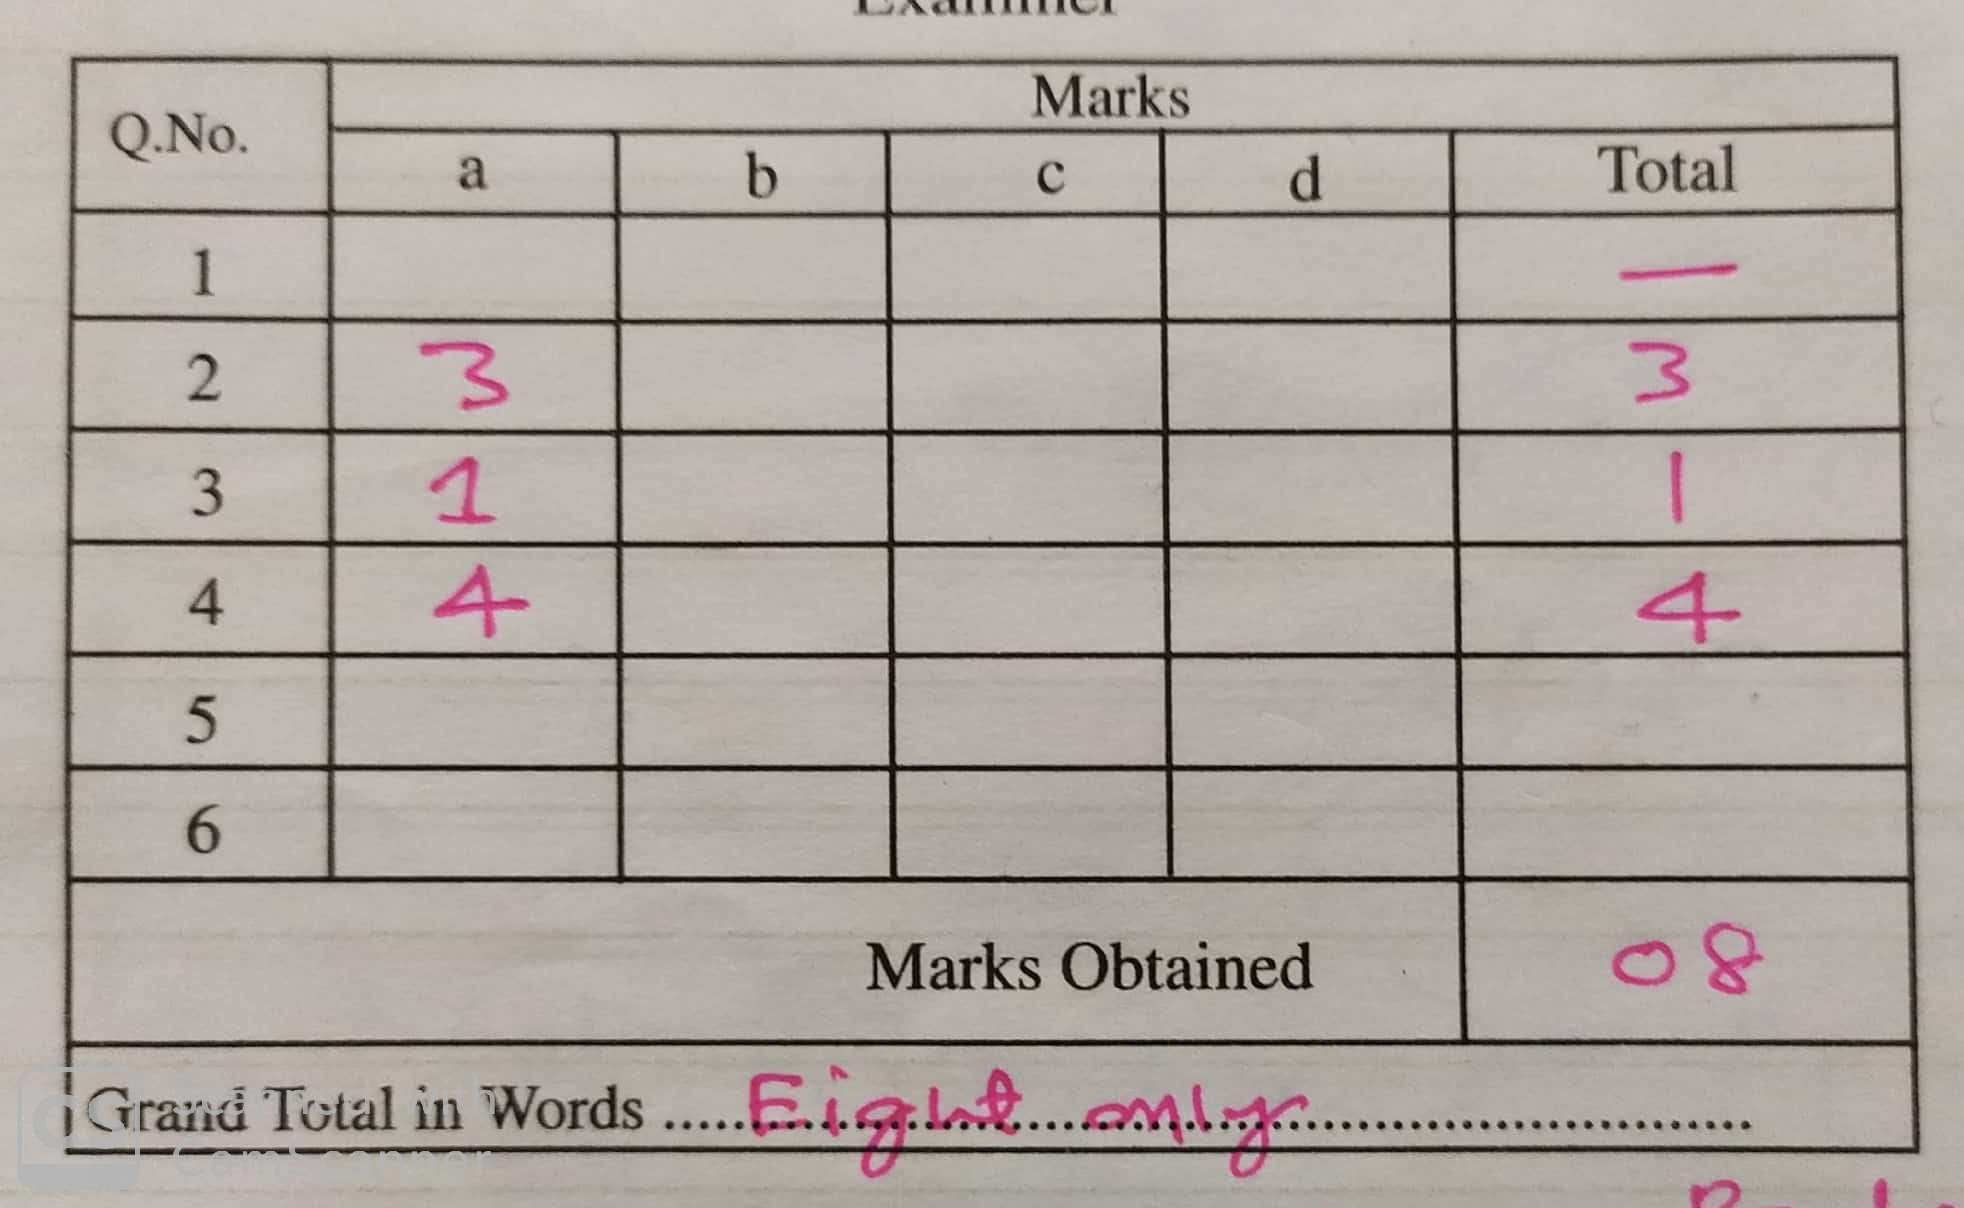 Examiner
Marks
Q.No.
a b c d Total
1 —
2 3 3
3 1 1
4 4 4
5
6
Marks Obtained 08
Grand Total in Words .....Eight only..............................
CamScanner